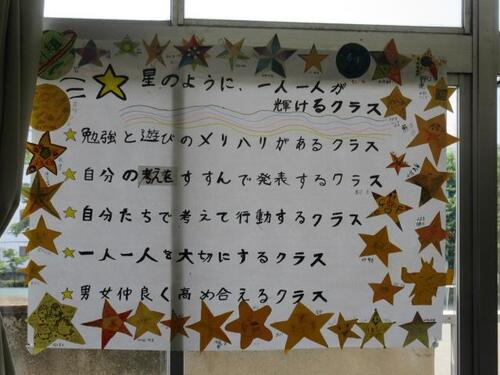 星のように、一人一人が
輝けるクラス
勉強と遊びのメリハリがあるクラス
自分の考えをすすんで発表するクラス
自分たちで考えて行動するクラス
一人一人を大切にするクラス
男女仲良く高め合えるクラス